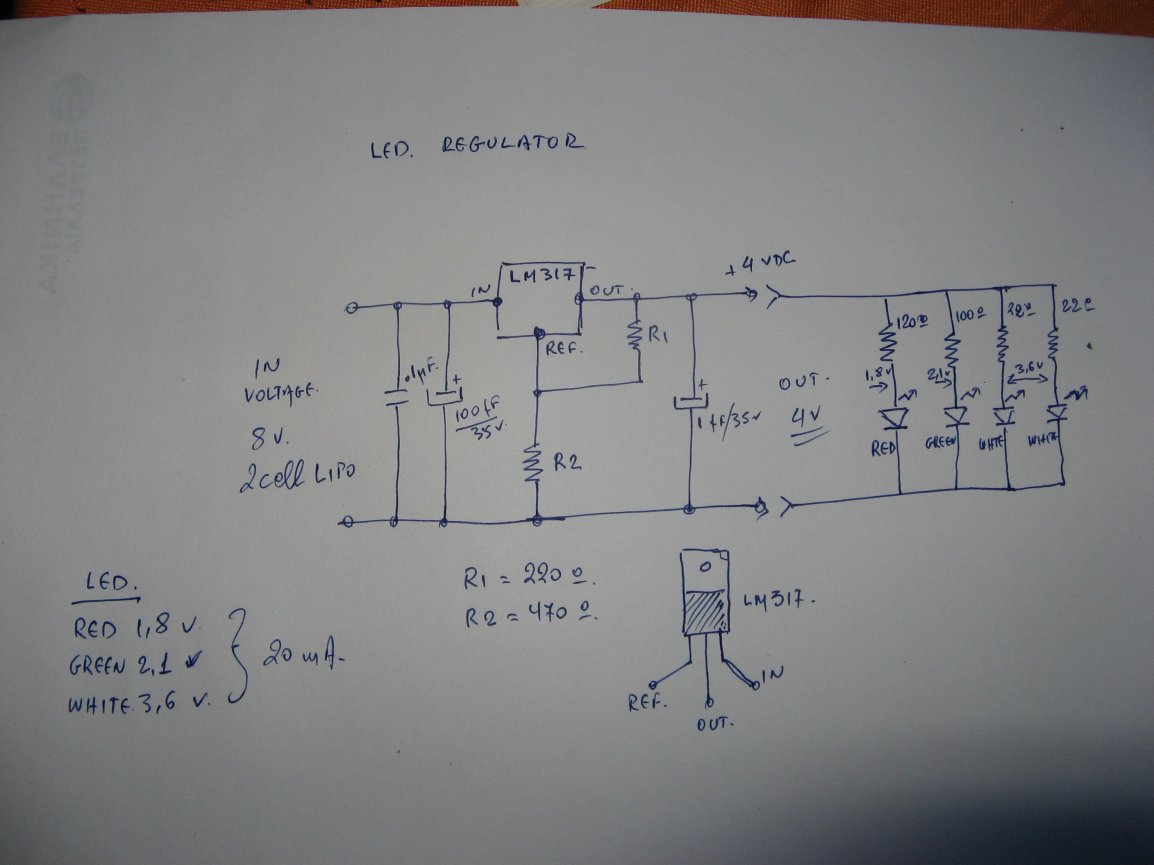 LED. REGULATOR
+4 VDC
LM317
IN
OUT.
REF.
R1
.1µF.
+
100µF
35 V.
R2
+
1µF/35V
IN
VOLTAGE.
8 V.
2cell LIPO
OUT.
4V
120Ω
100Ω
22Ω
22Ω
1,8V
2,1V
3,6V
RED
GREEN
WHITE
WHITE
LED.
RED 1,8 V.
GREEN 2,1 V
WHITE. 3,6 V.
20 mA.
R1 = 220 Ω.
R2 = 470 Ω.
LM317.
REF.
OUT.
IN